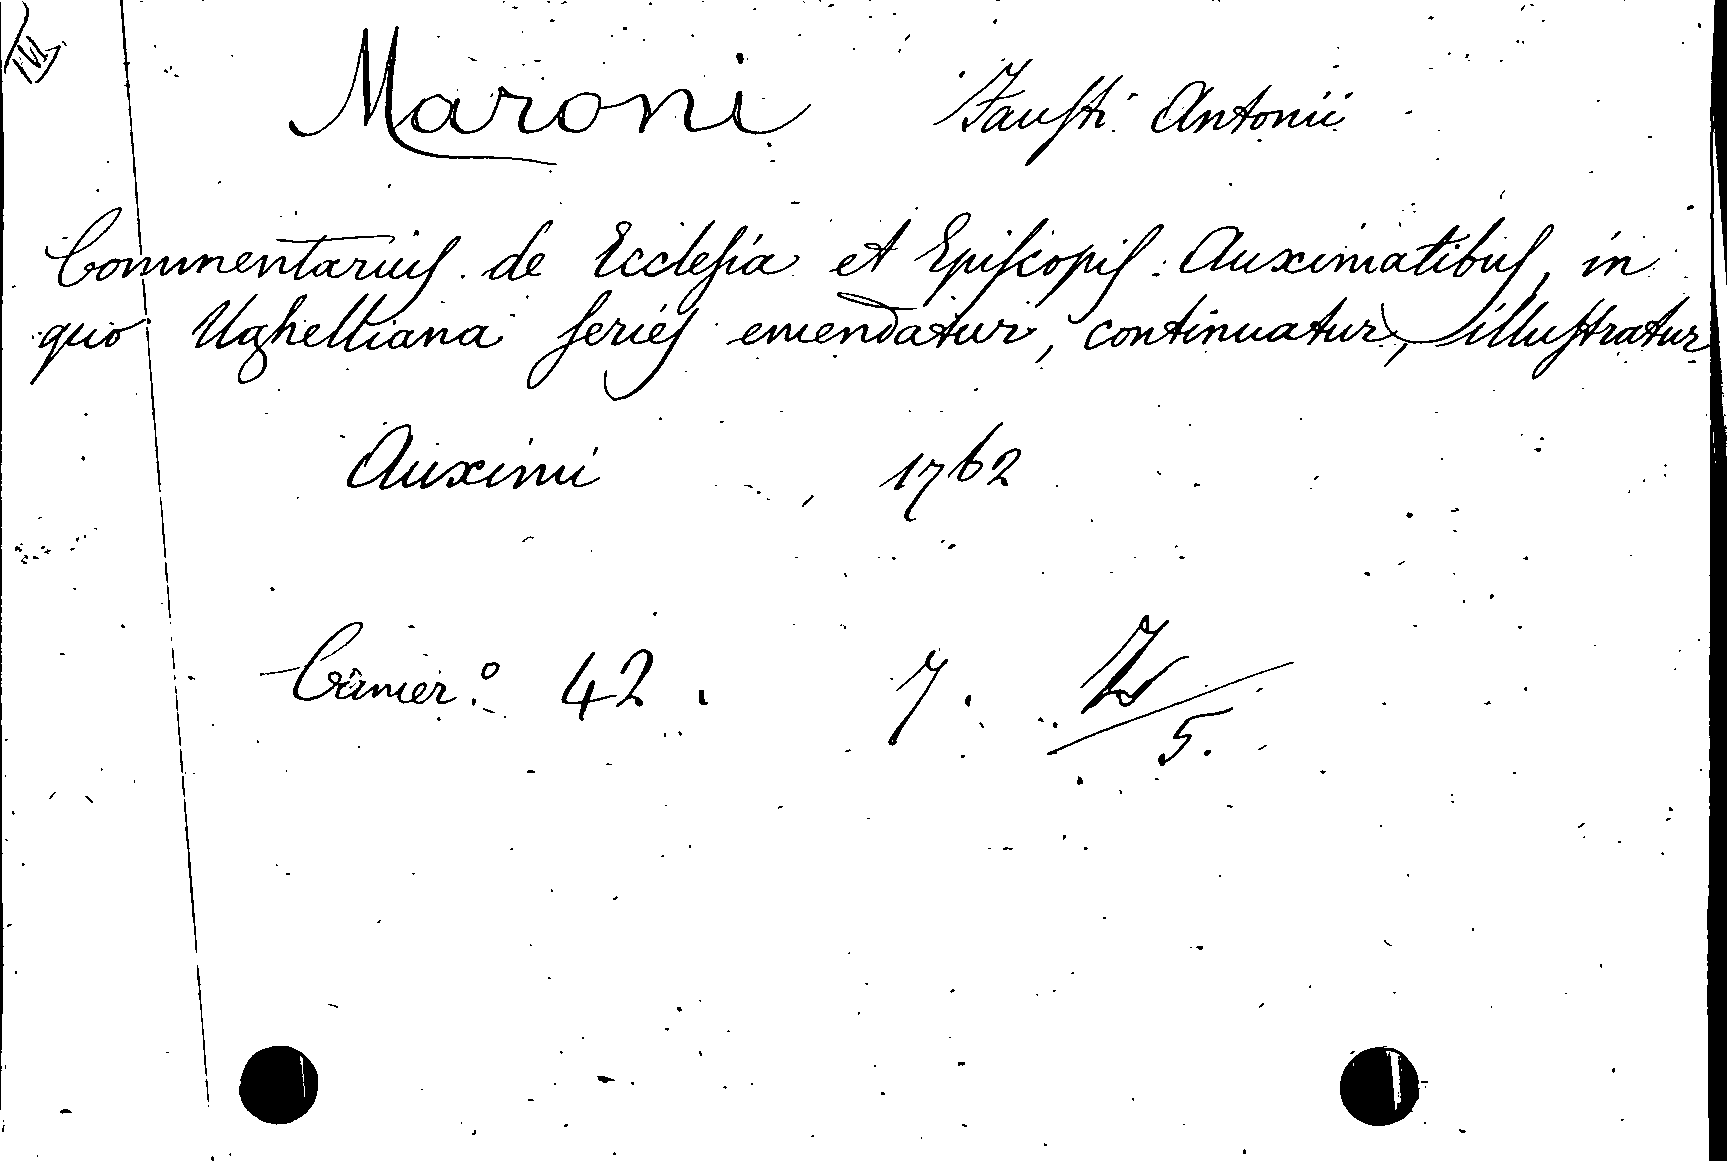 Maroni Fausti Antonii
Commentarius de Ecclesia et Episcopis Auximatibus, in
quo Ughelliana series emendatur, continuatur, illustratur
Auximi 1762
Camer.º 42. 7.
5.